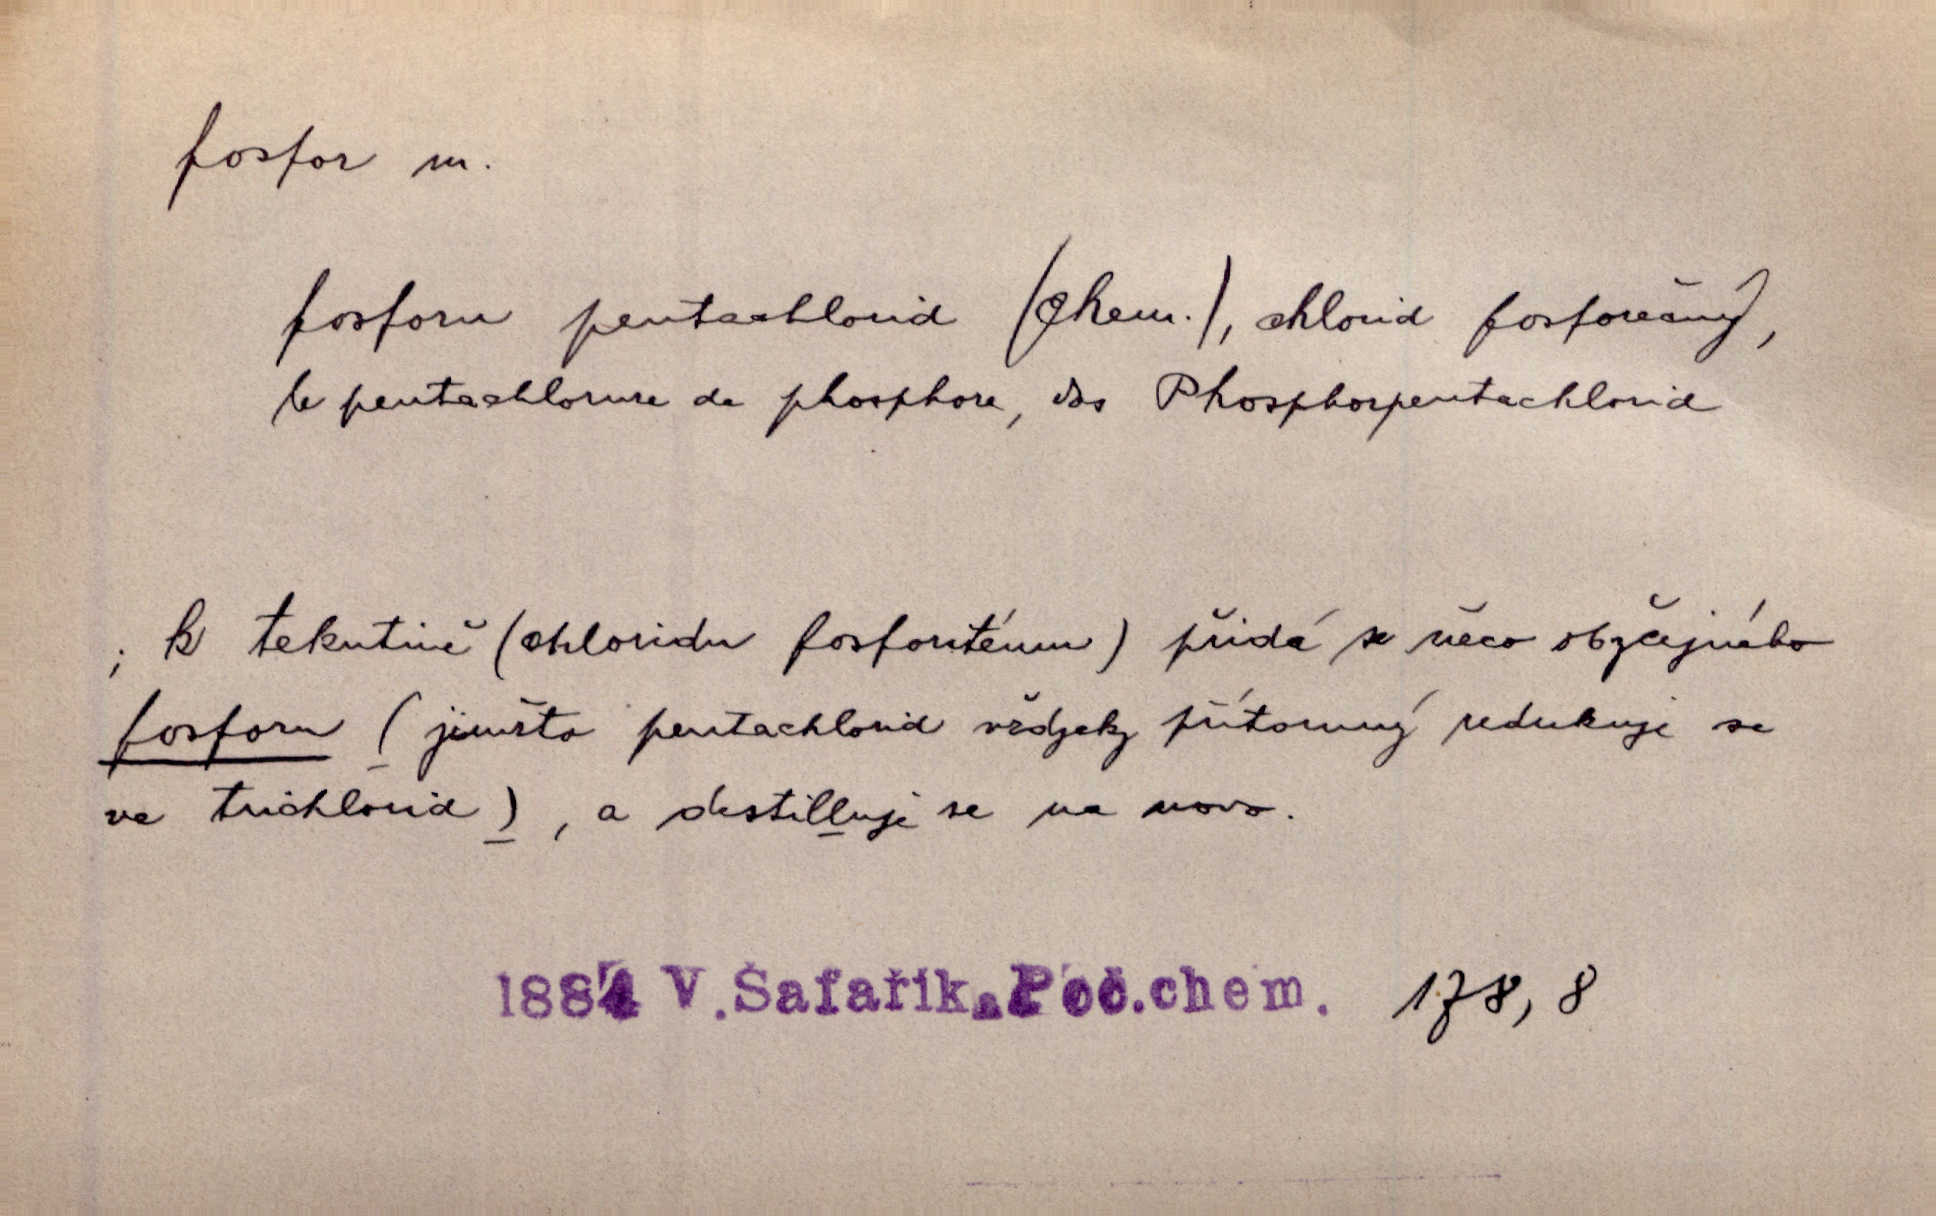 fosfor m.
fosforu pentachlorid (chem.), chlorid fosforečný,
le pentachlorure de phosphore, das Phosphorpentachlorid
; k tekutině (chloridu fosforitému) přidá se něco obyčejného
fosforu (jímžto pentachlorid vždycky přítomný redukuje se
ve trichlorid), a destilluje se na novo.
1884 V. Šafařík, Poč.chem. 178, 8